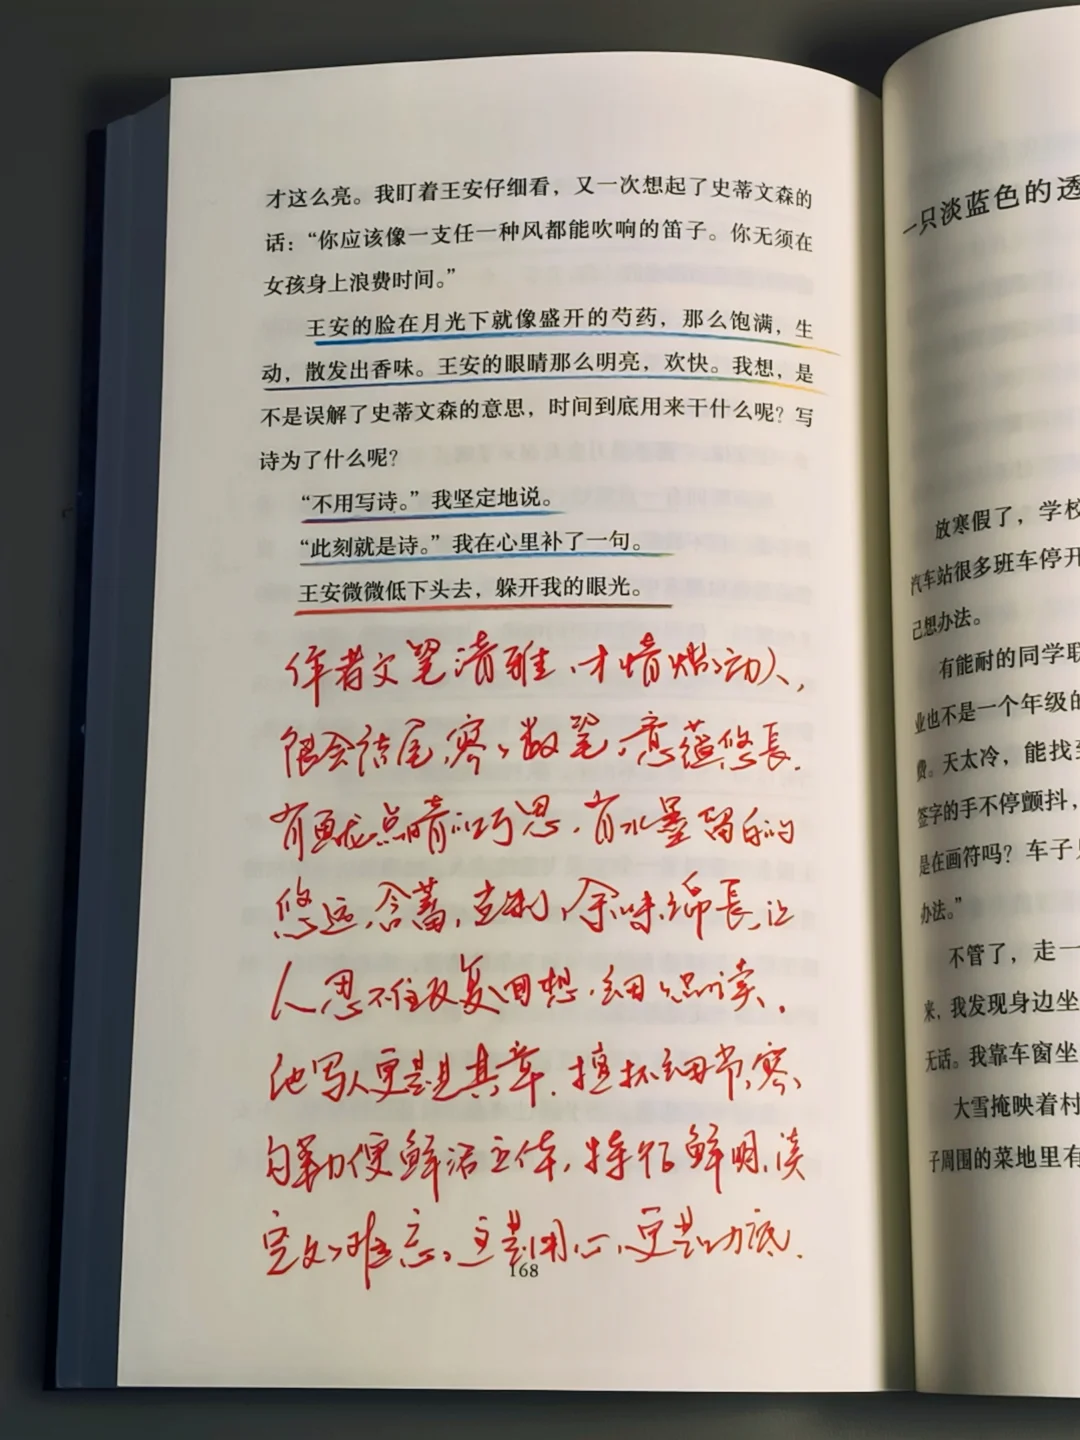 才这么亮。我盯着王安仔细看，又一次想起了史蒂文森的
话：“你应该像一支任一种风都能吹响的笛子。你无须在
女孩身上浪费时间。”
王安的脸在月光下就像盛开的芍药，那么饱满，生
动，散发出香味。王安的眼睛那么明亮，欢快。我想，是
不是误解了史蒂文森的意思，时间到底用来干什么呢？写
诗为了什么呢？
“不用写诗。”我坚定地说。
“此刻就是诗。”我在心里补了一句。
王安微微低下头去，躲开我的眼光。
作者文笔清雅、才情动人，
很会结尾，寥寥数笔，意蕴悠長．
有画龙点睛的巧思，有水墨留白的
悠远，含蓄，克制，余味绵長，让
人忍不住反复回想，细细品读．
他写人更是其章．擅抓细节，寥
勾勒便鲜活立体，特征鲜明，读
完久久难忘。这是用心，更是功底．
168
一只淡蓝色的透
放寒假了，学校
汽车站很多班车停开
己想办法。
有能耐的同学联
业也不是一个年级的
费。天太冷，能找到
签字的手不停颤抖，
是在画符吗？车子
办法。”
不管了，走一
来，我发现身边坐
无话。我靠车窗坐
大雪掩映着村
子周围的菜地里有